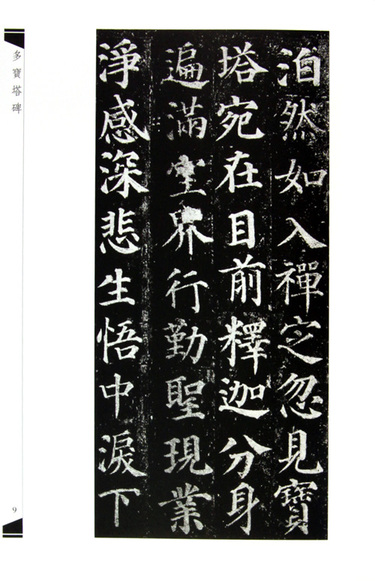 多寶塔碑
洦然如入禪定忽見寶
塔宛在目前釋迦分身
遍滿空界行勤聖現業
淨感深悲生悟中淚下
9